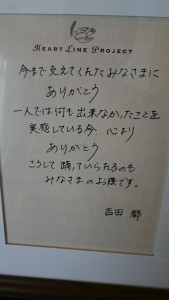 HEART LINE PROJECT
今まで支えてくれたみなさまに
ありがとう
一人では何も出来なかったことを
実感している今 心より
ありがとう
こうして踊っていられるのも
みなさまのお蔭です。
吉田 都